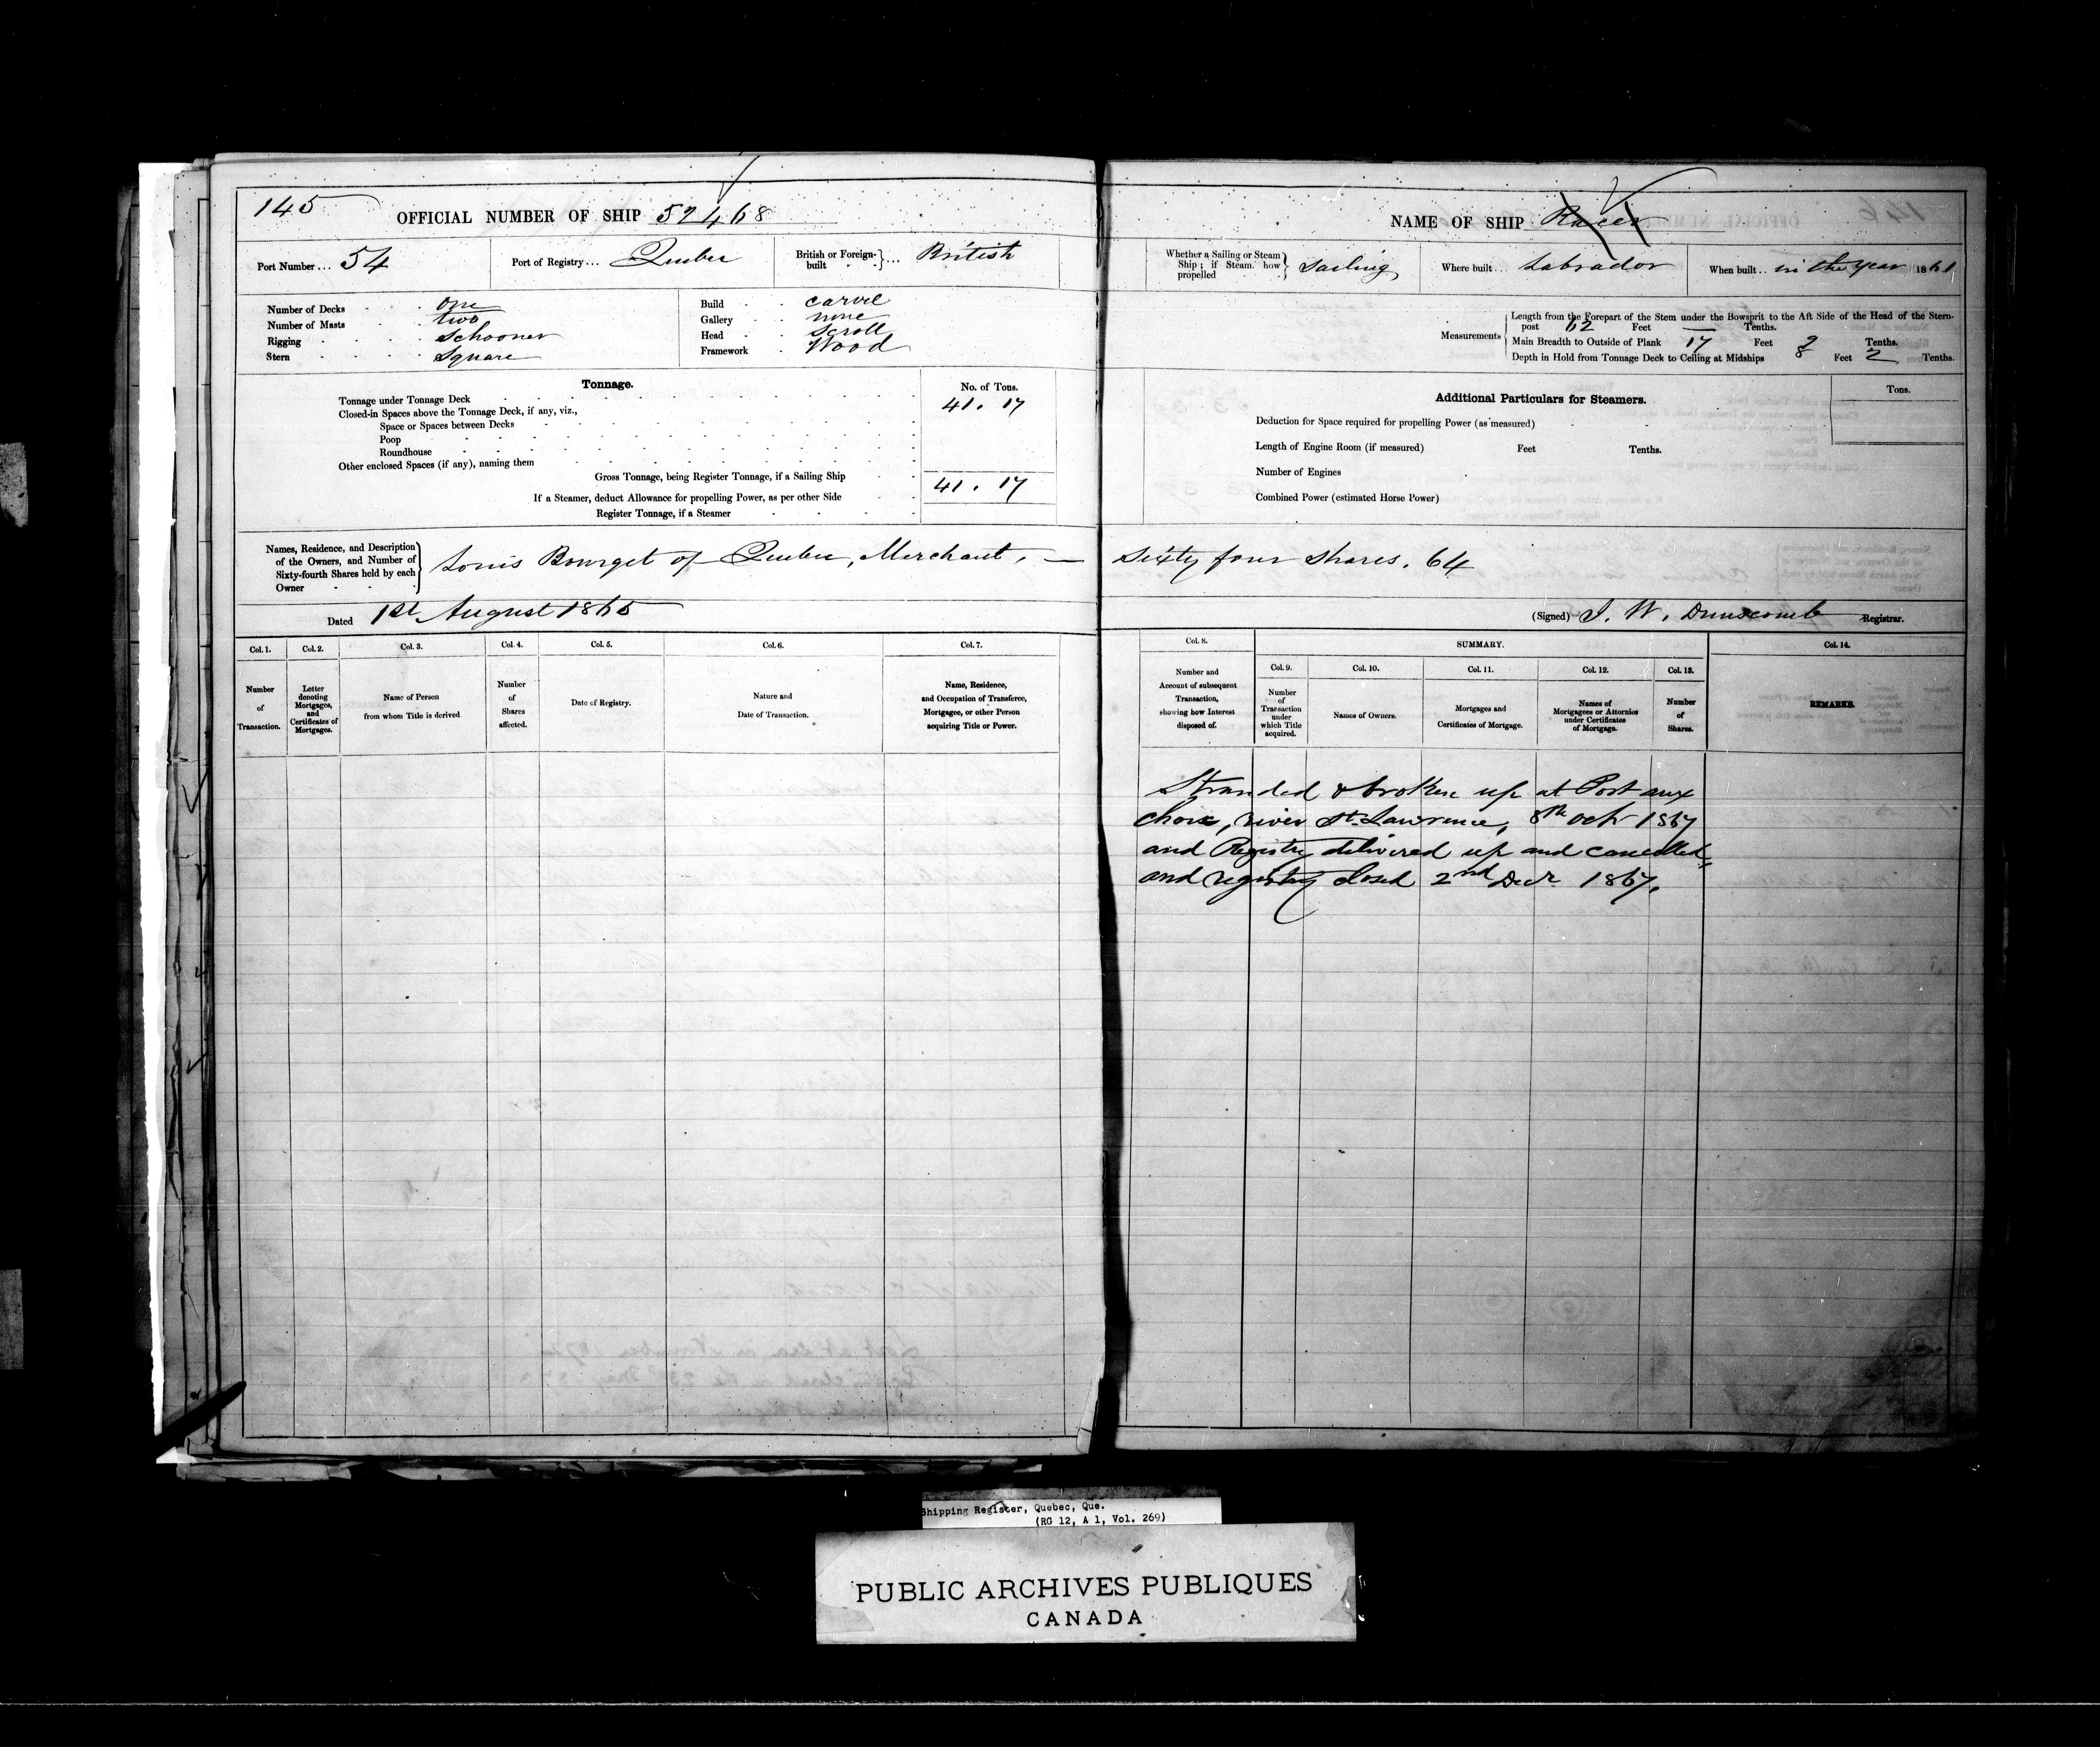 145
OFFICIAL NUMBER OF SHIP 52468
Port Number... 54
Port of Registry... Quebec
British or Foreign-built } ... British
Number of Decks one
Number of Masts two
Rigging Schooner
Stern Square
Build carvel
Gallery none
Head Scroll
Framework Wood
Tonnage.
No. of Tons.
Tonnage under Tonnage Deck 41. 17
Closed-in Spaces above the Tonnage Deck, if any, viz.,
Space or Spaces between Decks
Poop
Roundhouse
Other enclosed Spaces (if any), naming them
Gross Tonnage, being Register Tonnage, if a Sailing Ship 41. 17
If a Steamer, deduct Allowance for propelling Power, as per other Side
Register Tonnage, if a Steamer
Names, Residence, and Description
of the Owners, and Number of
Sixty-fourth Shares held by each
Owner
Louis Bourget of Quebec, Merchant, —
Dated 1st August 1865
Col. 1.
Number
of
Transaction.
Col. 2.
Letter
denoting
Mortgages,
and
Certificates of
Mortgages.
Col. 3.
Name of Person
from whom Title is derived
Col. 4.
Number
of
Shares
affected.
Col. 5.
Date of Registry.
Col. 6.
Nature and
Date of Transaction.
Col. 7.
Name, Residence,
and Occupation of Transferee,
Mortgagee, or other Person
acquiring Title or Power.
NAME OF SHIP Racer
Whether a Sailing or Steam
Ship; if Steam how
propelled } Sailing
Where built... Labrador
When built.. in the year 1861
Measurements
Length from the Forepart of the Stem under the Bowsprit to the Aft Side of the Head of the Stern-
post 62 Feet — Tenths.
Main Breadth to Outside of Plank 17 Feet 9 Tenths.
Depth in Hold from Tonnage Deck to Ceiling at Midships 8 Feet 2 Tenths.
Additional Particulars for Steamers.
Tons.
Deduction for Space required for propelling Power (as measured)
Length of Engine Room (if measured) Feet Tenths.
Number of Engines
Combined Power (estimated Horse Power)
Sixty four shares. 64
(Signed) J. W. Dunscomb Registrar.
Col. 8.
Number and
Account of subsequent
Transaction,
showing how Interest
disposed of.
SUMMARY.
Col. 9.
Number
of
Transaction
under
which Title
acquired.
Col. 10.
Names of Owners.
Col. 11.
Mortgages and
Certificates of Mortgage.
Col. 12.
Names of
Mortgagees or Attornies
under Certificates
of Mortgage.
Col. 13.
Number
of
Shares.
Col. 14.
REMARKS.
Stranded & broken up at Port aux
choix, river St. Lawrence, 8th octr 1867
and Registry delivered up and cancelled,
and registry closed 2nd Decr 1867.
Shipping Register, Quebec, Que.
(RG 12, A 1, Vol. 269)
PUBLIC ARCHIVES PUBLIQUES
CANADA